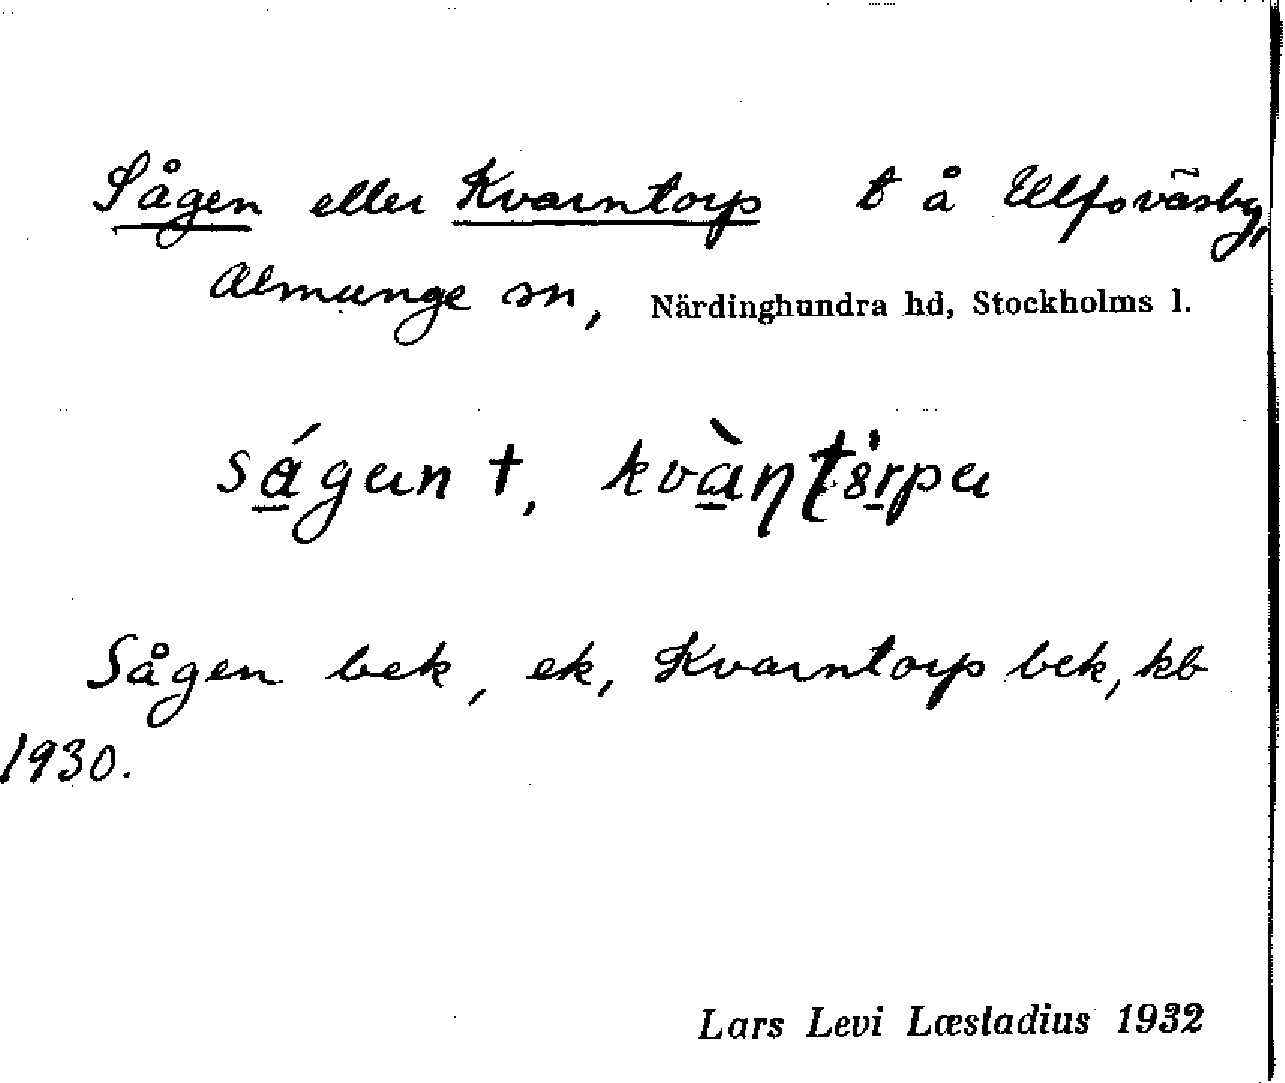 Sågen eller Kvarntorp t å Ulfsväsby,
Almunge sn, Närdinghundra hd, Stockholms l.
ságan †, kvàṇʈórpa
Sågen bek, ek, Kvarntorp bek, kb
1930.
Lars Levi Læstadius 1932